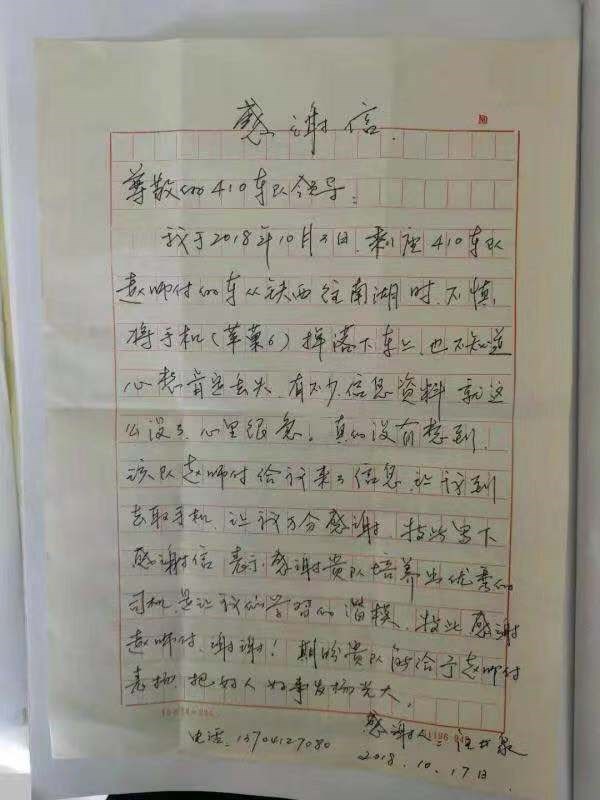 感谢信.
尊敬的410车队领导:
我于2018年10月3日.乘座410车队
赵师付的车从铁西往南湖时,不慎,
将手机(苹菓6)掉落下车上,也不知道
心想肯定丢失,有不少信息资料就这
么没了,心里很急。真的没有想到,
该队赵师付给我来了信息,让我到
去取手机,让我万分感谢,特此写下
感谢信 表示感谢贵队培养出优秀的
司机,是让我们学习的楷模,特此感谢
赵师付,谢谢!期盼贵队能给予赵师付
表扬,把好人好事发扬光大。
感谢人:
电话.13704127080
2018.10.17日.